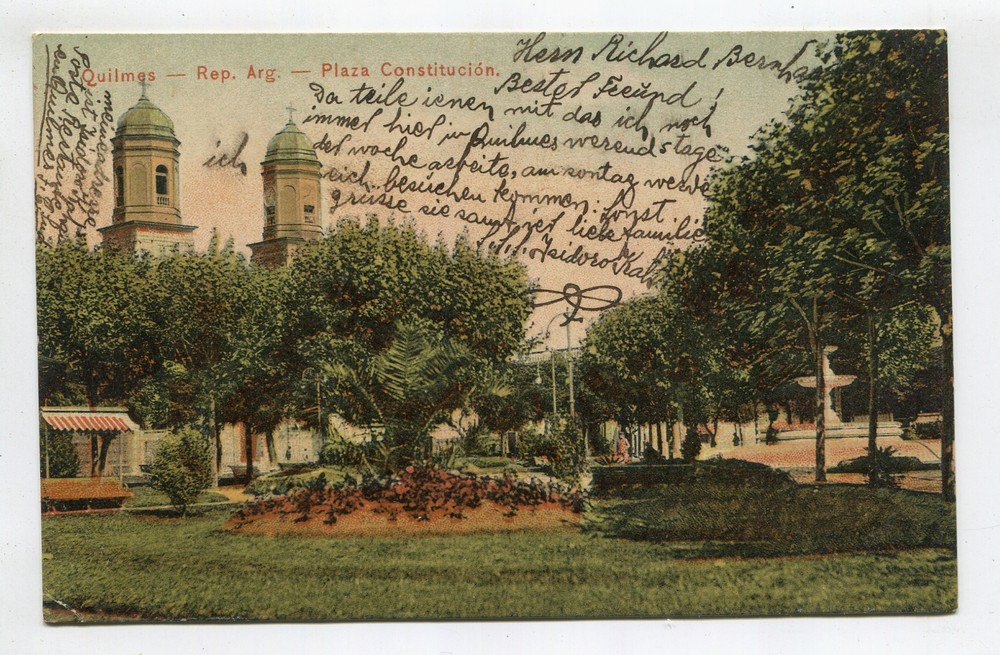 Quilmes — Rep. Arg. — Plaza Constitución.
Herrn Richard Bernha
Bester Freünd!
Da teile ienen mit das ich noch
immer hier in Quilmes werend s tage
der woche arbeite, am sontag werde
ich
eich besüchen kommen. sonst
grüsse sie samt ier liebe familie
Isidoro
meine adresse
en Quilmes